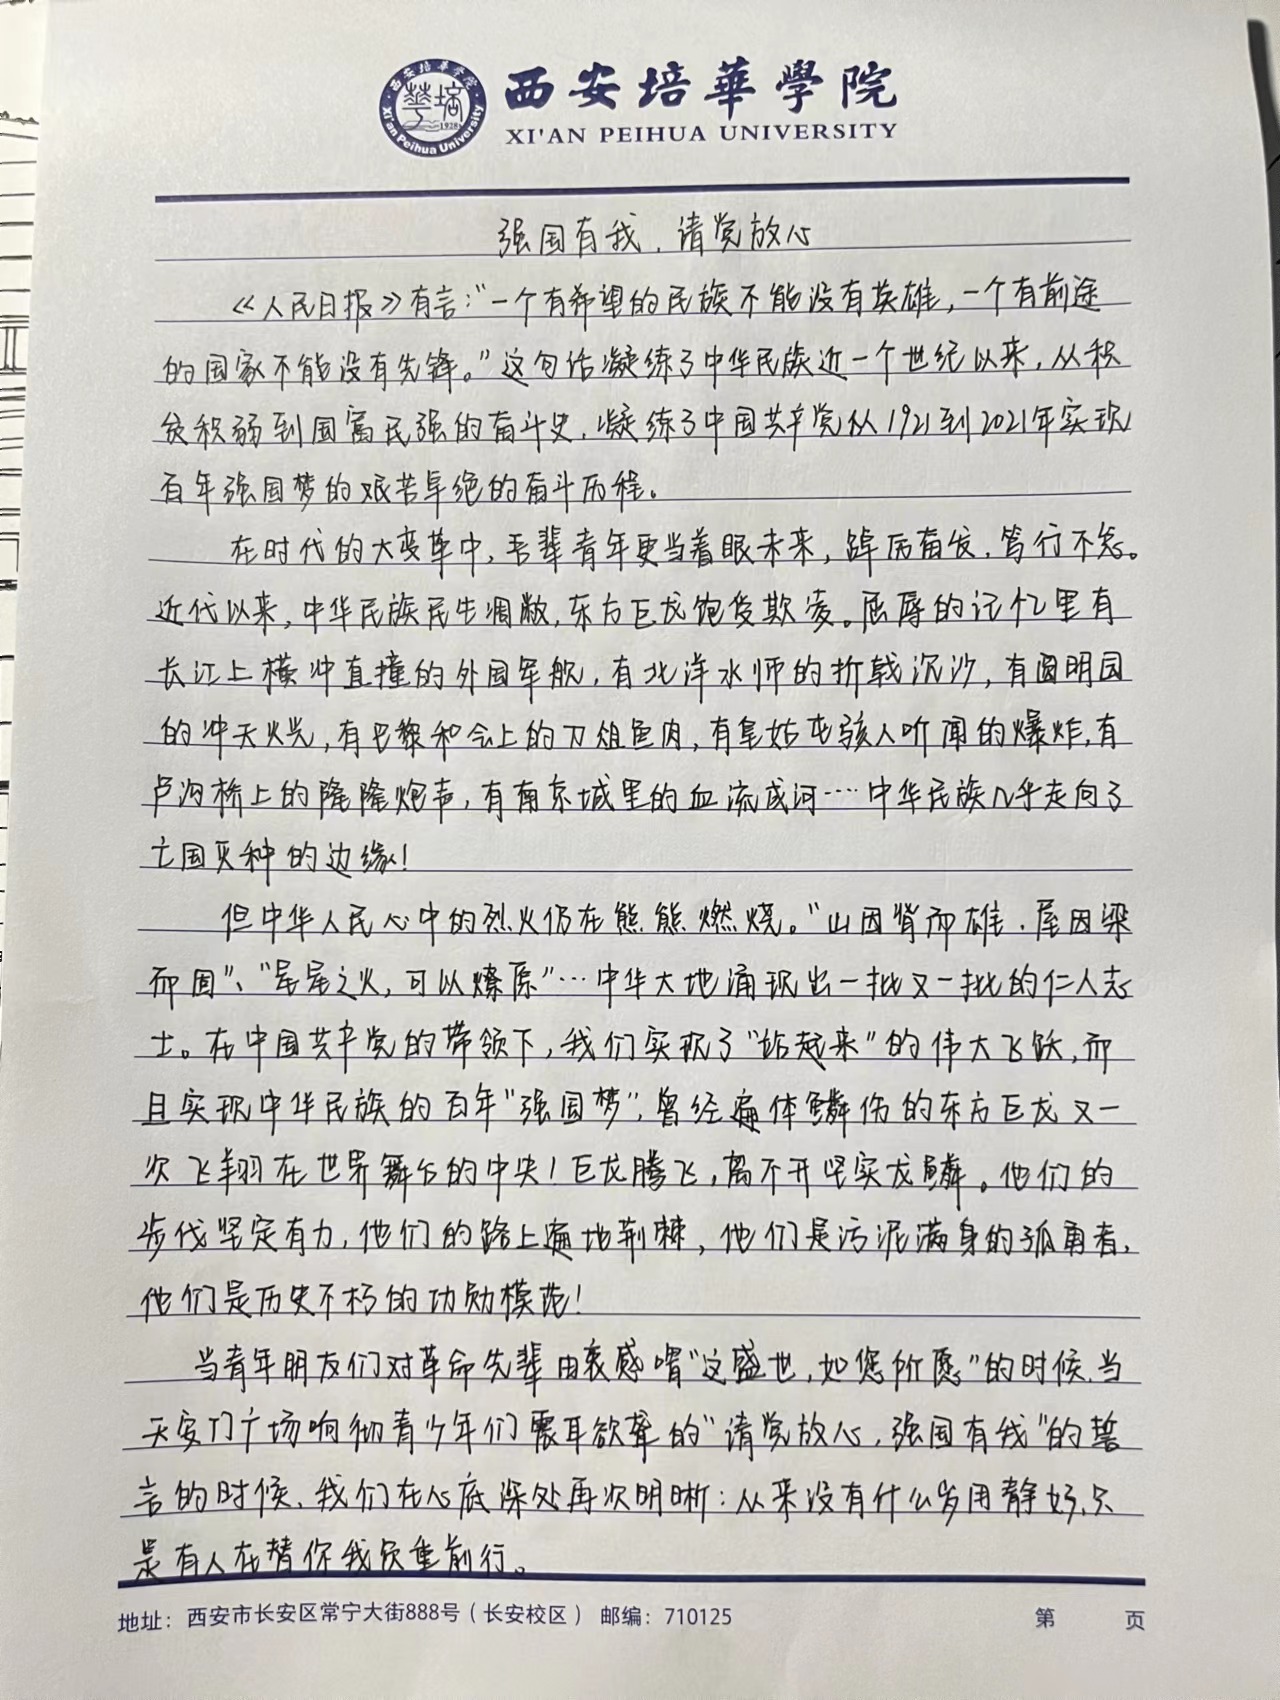 西安培華學院
XI'AN PEIHUA UNIVERSITY
西安培華学院
1928
Xi'an Peihua University
强国有我，请党放心
《人民日报》有言："一个有希望的民族不能没有英雄，一个有前途
的国家不能没有先锋。"这句话凝练了中华民族近一个世纪以来，从积
贫积弱到国富民强的奋斗史，凝练了中国共产党从1921到2021年实现
百年强国梦的艰苦卓绝的奋斗历程。
在时代的大变革中，吾辈青年更当着眼未来，踔厉奋发，笃行不怠。
近代以来，中华民族民生凋敝，东方巨龙饱受欺凌。屈辱的记忆里有
长江上横冲直撞的外国军舰，有北洋水师的折戟沉沙，有圆明园
的冲天火光，有巴黎和会上的刀俎鱼肉，有皇姑屯骇人听闻的爆炸，有
卢沟桥上的隆隆炮声，有南京城里的血流成河……中华民族几乎走向了
亡国灭种的边缘！
但中华人民心中的烈火仍在熊熊燃烧。"山因脊而雄，屋因梁
而固"、"星星之火，可以燎原"…中华大地涌现出一批又一批的仁人志
士。在中国共产党的带领下，我们实现了"站起来"的伟大飞跃，而
且实现中华民族的百年"强国梦"，曾经遍体鳞伤的东方巨龙又一
次飞翔在世界舞台的中央！巨龙腾飞，离不开坚实龙鳞。他们的
步伐坚定有力，他们的路上遍地荆棘，他们是污泥满身的孤勇者，
他们是历史不朽的功勋模范！
当青年朋友们对革命先辈由衷感喟"这盛世，如您所愿"的时候，当
天安门广场响彻青少年们震耳欲聋的"请党放心，强国有我"的誓
言的时候，我们在心底深处再次明晰：从来没有什么岁月静好，只
是有人在替你我负重前行。
地址：西安市长安区常宁大街888号（长安校区） 邮编：710125 第 页